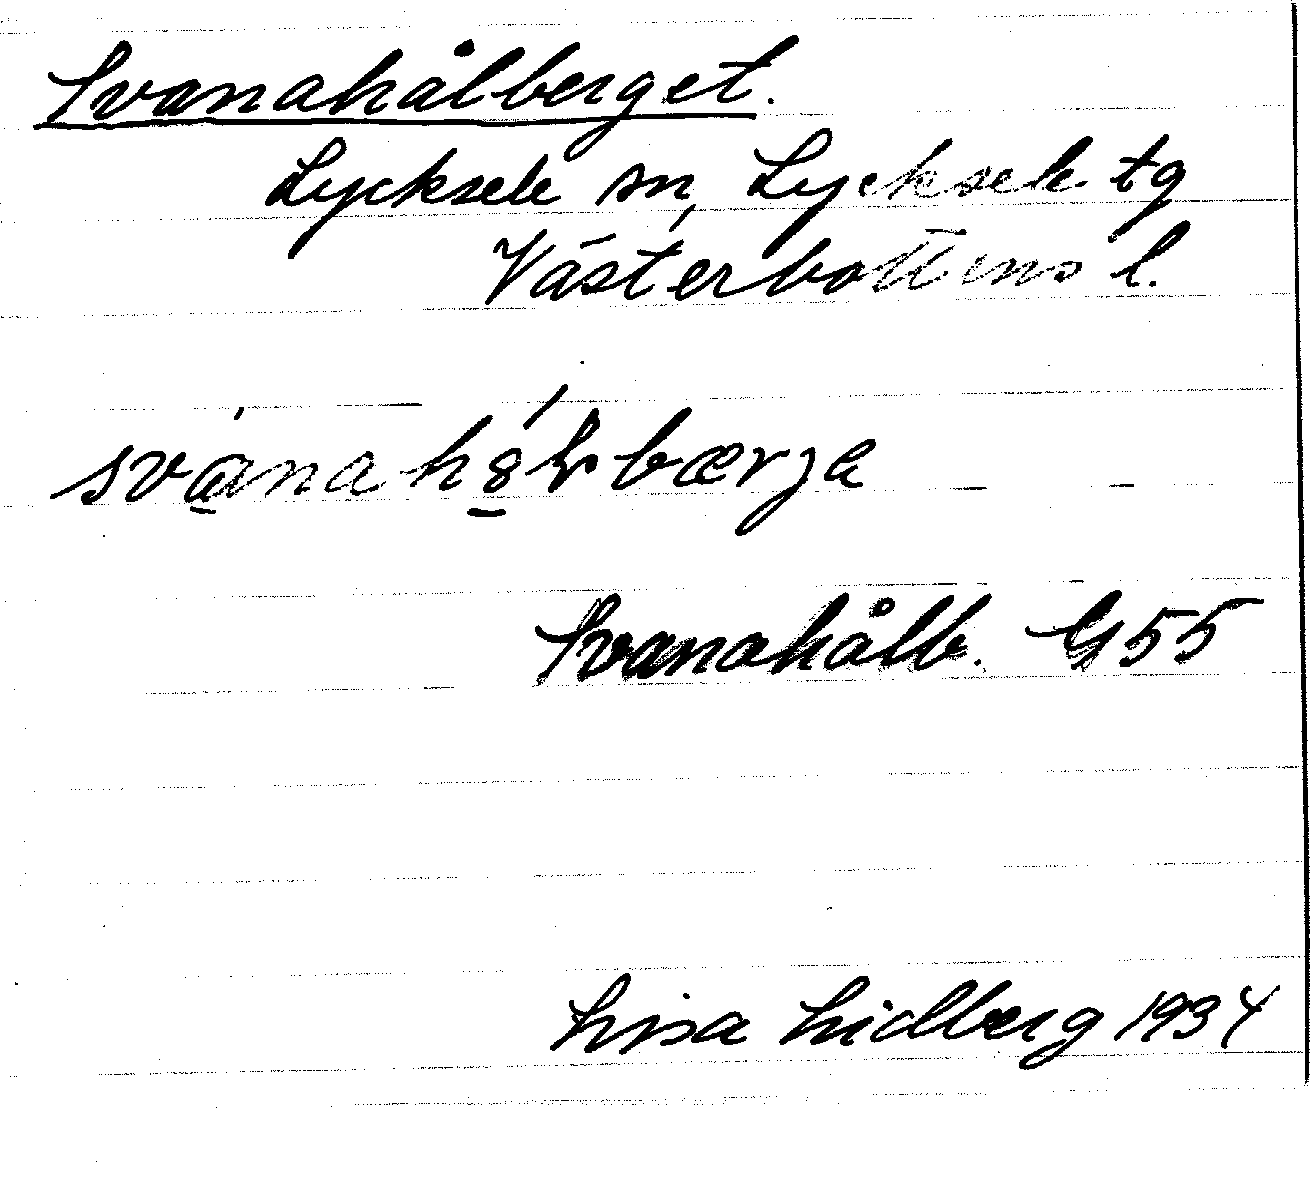 Svanahålberget.
Lycksele sn, Lycksele tg
Västerbottens l.
Svanahålb. G55
Lisa Lidberg 1934